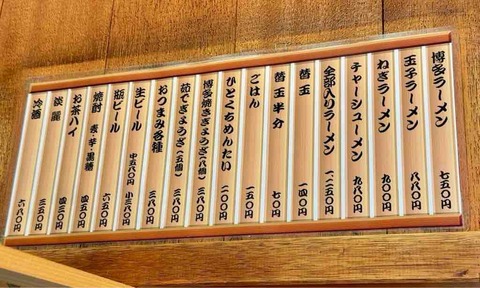 博多ラーメン 七五〇円
玉子ラーメン 八八〇円
ねぎラーメン 九〇〇円
チャーシューメン 九八〇円
全部入りラーメン 一二五〇円
替玉 一四〇円
替玉半分 七〇円
ごはん 一五〇円
ひとくちめんたい 二〇〇円
博多焼きぎょうざ(八個) 三八〇円
茹でぎょうざ(五個) 三八〇円
おつまみ各種 三八〇円
生ビール 中五八〇円 小三八〇円
瓶ビール 六五〇円
焼酎 麦・芋・黒糖 四五〇円
お茶ハイ 四三〇円
淡麗 三五〇円
冷酒 六八〇円